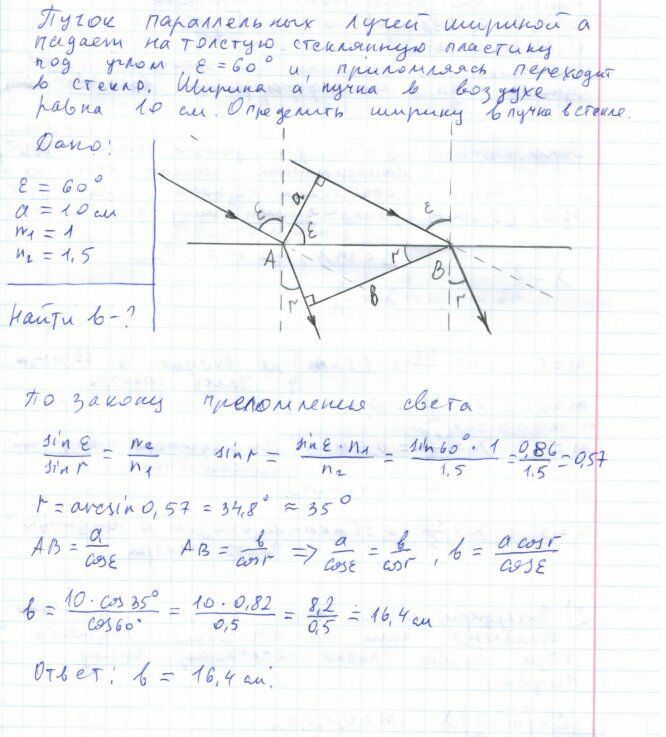 Пучок параллельных лучей шириной а
падает на толстую стеклянную пластику
под углом ε = 60° и, приломляясь переходит
в стекло. Ширина а пучка в воздухе
равна 10 см. Определить ширину в пучка в стекле.
Дано:
ε = 60°
a = 10 см
n₁ = 1
n₂ = 1,5
Найти в - ?
ε a ε ε
A r B
r в r
По закону преломленья света
sin ε / sin r = n₂ / n₁ sin r = sin ε · n₁ / n₂ = sin 60° · 1 / 1,5 = 0,86 / 1,5 = 0,57
r = arcsin 0,57 = 34,8° ≈ 35°
AB = a / cos ε AB = в / cos r => a / cos ε = в / cos r , в = a cos r / cos ε
в = 10 · cos 35° / cos 60° = 10 · 0,82 / 0,5 = 8,2 / 0,5 = 16,4 см
Ответ: в = 16,4 см.